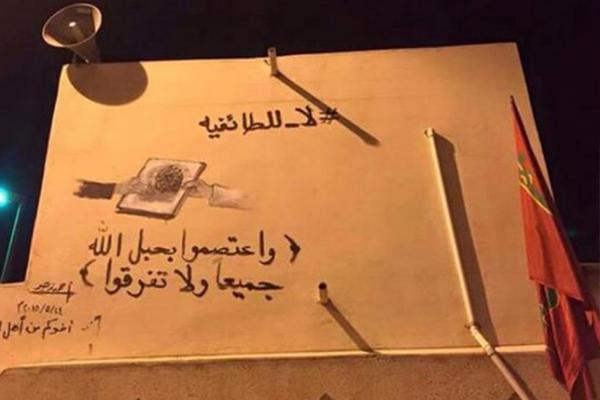 #لا_للطائفيه
﴿ واعتصموا بحبل الله
جميعا ولا تفرقوا ﴾
٢٠١٥/٥/٢٤
أخوكم من أهل